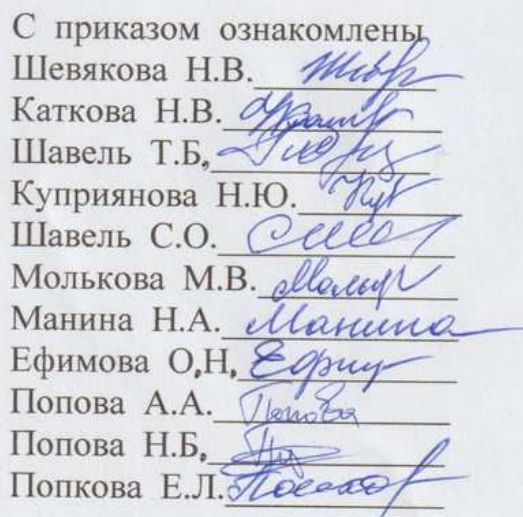 С приказом ознакомлены
Шевякова Н.В.
Каткова Н.В.
Шавель Т.Б,
Куприянова Н.Ю.
Шавель С.О.
Молькова М.В.
Манина Н.А. Манина
Ефимова О,Н,
Попова А.А. Попова
Попова Н.Б,
Попкова Е.Л.